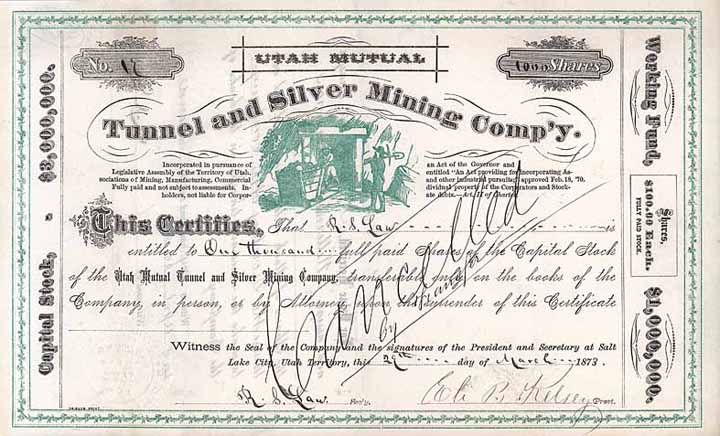 No. 17
UTAH MUTUAL
1000 Shares
Tunnel and Silver Mining Comp'y.
Incorporated in pursuance of
Legislative Assembly of the Territory of Utah.
sociations of Mining, Manufacturing, Commercial
Fully paid and not subject to assessments. In-
holders, not liable for Corpor-
an Act of the Governor and
entitled "An Act providing for incorporating As-
and other industrial pursuits, approved Feb. 18, '70.
dividual property of the Corporators and Stock-
ate debts.—Art. II of Charter
This Certifies, That R. S. Law is
entitled to One thousand full paid Shares of the Capital Stock
of the Utah Mutual Tunnel and Silver Mining Company, transferable only on the books of the
Company, in person, or by Attorney, upon the surrender of this Certificate
Cancelled
by transfer
Witness the Seal of the Company and the signatures of the President and Secretary at Salt
Lake City, Utah Territory, this 26th day of March 1873.
R. S. Law Sec'y.
Eli B. Kelsey Prest.
Capital Stock, - $3,000,000.
Working Fund, $1,000,000.
Shares,
$100.00 Each.
FULLY PAID STOCK.